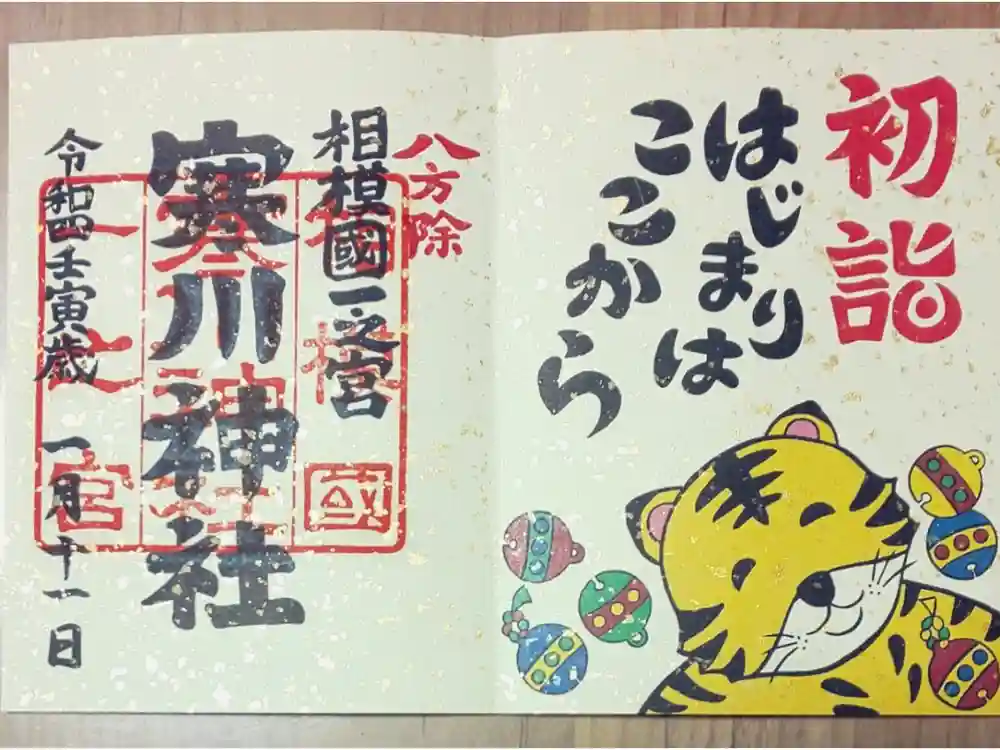 初詣
はじまりは
ここから
八方除
相模國一之宮
寒川神社
令和四壬寅歳 一月十一日
相模國
一之宮